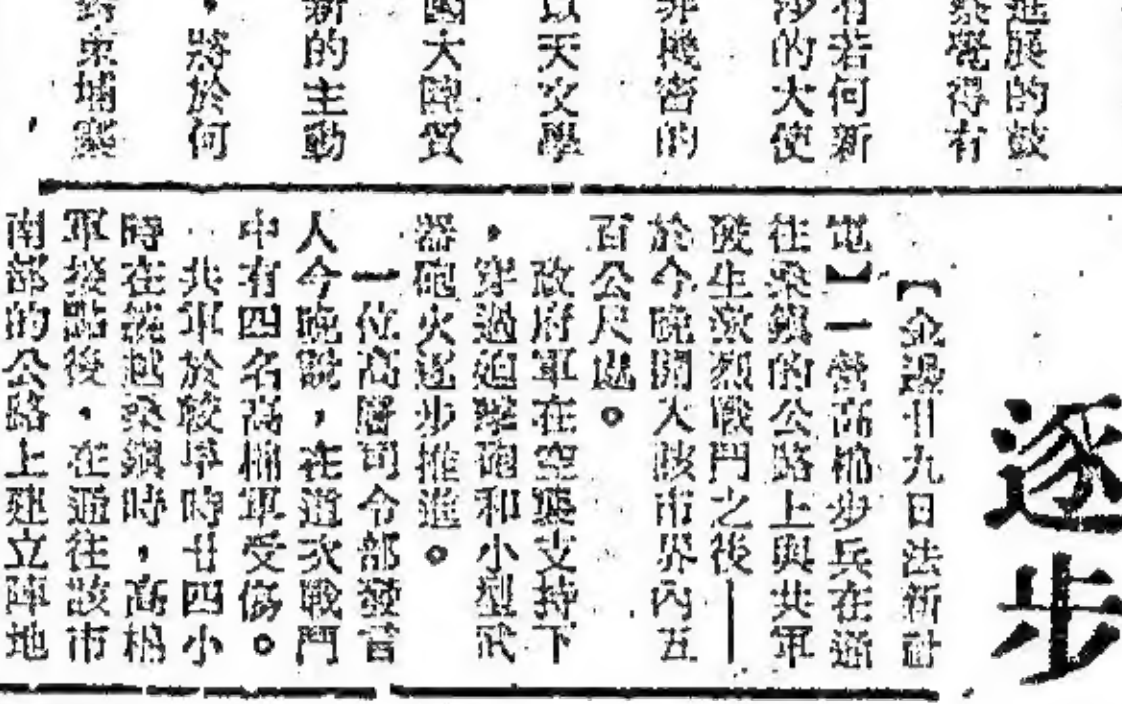 進展的鼓
衆覺得有
有若何新
沙的大使
非機密的
以天文學
國大陣質
新的主動
，將於何
柬埔寨
，
逐步
【金邊廿九日法新社
電】一營高棉步兵在通
往柴鎮的公路上與共軍
發生激烈戰鬥之後——
於今晚開入該市界內五
百公尺處。
政府軍在空襲支持下
，穿過迫擊砲和小型武
器砲火逐步推進。
一位高層司令部發言
人今晚說，在這次戰鬥
中有四名高棉軍受傷。
共軍於較早時廿四小
時在繞越柴鎮時，高棉
軍據點後，在通往該市
南部的公路上建立陣地